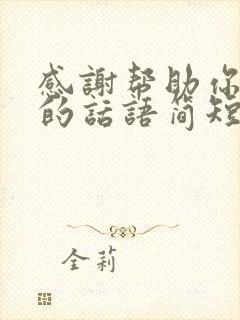 感謝帮助你
的話語简短
全莉